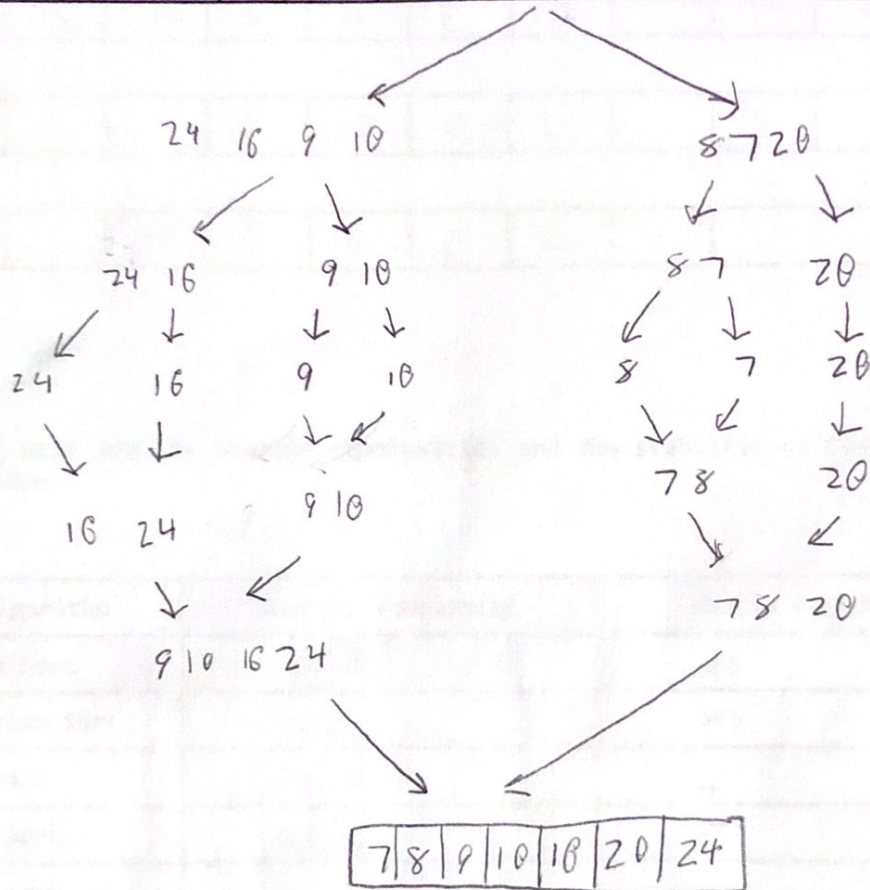 24 16 9 10
8 7 20
24 16
9 10
8 7
20
24
16
9
10
8
7
20
16 24
9 10
7 8
20
9 10 16 24
7 8 20
7 8 9 10 16 20 24